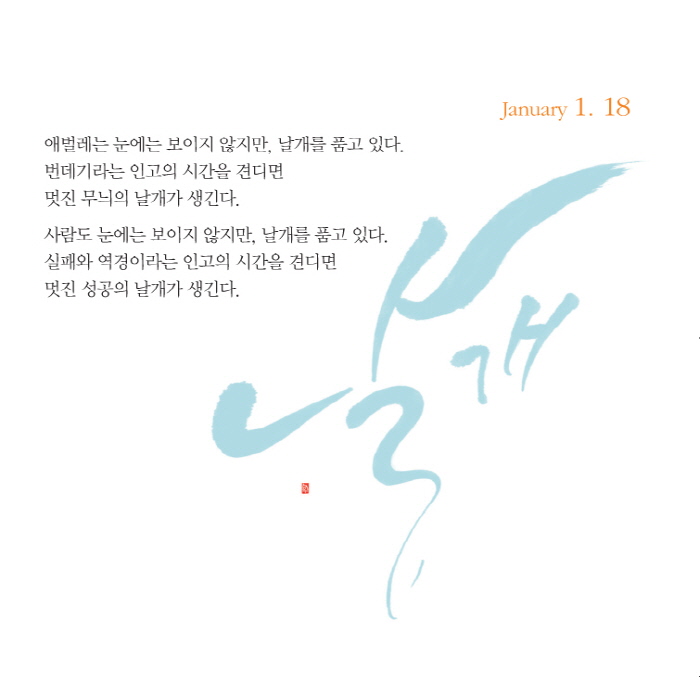 January 1. 18
애벌레는 눈에는 보이지 않지만, 날개를 품고 있다.
번데기라는 인고의 시간을 견디면
멋진 무늬의 날개가 생긴다.
사람도 눈에는 보이지 않지만, 날개를 품고 있다.
실패와 역경이라는 인고의 시간을 견디면
멋진 성공의 날개가 생긴다.
날개